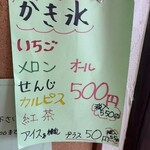 かき氷
いちご
メロン オール
せんじ 500円
カルピス 税込550円
紅茶
アイス プラス50円